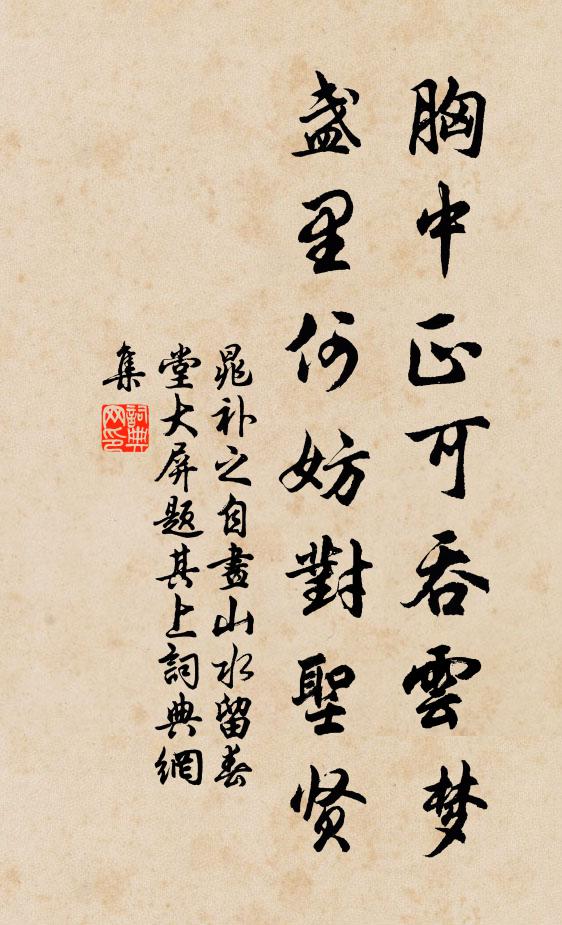 胸中正可吞雲梦
盏里何妨對聖贤
晁补之自畫山水留春
堂大屏题其上詞典網
集
詞典
网印